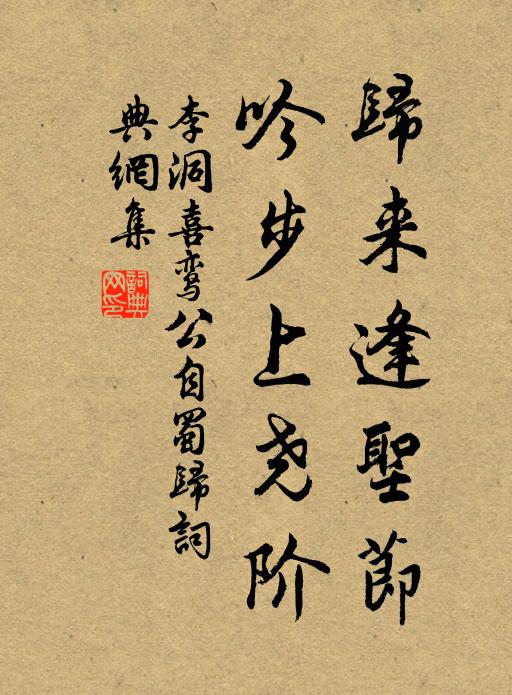 歸来逢聖節
吟步上尧阶
李洞喜鸾公自蜀歸詞
典網集
詞典
网印